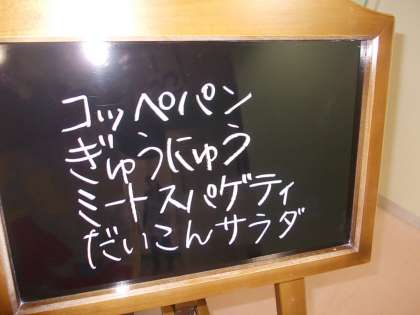 コッペパン
ぎゅうにゅう
ミートスパゲティ
だいこんサラダ